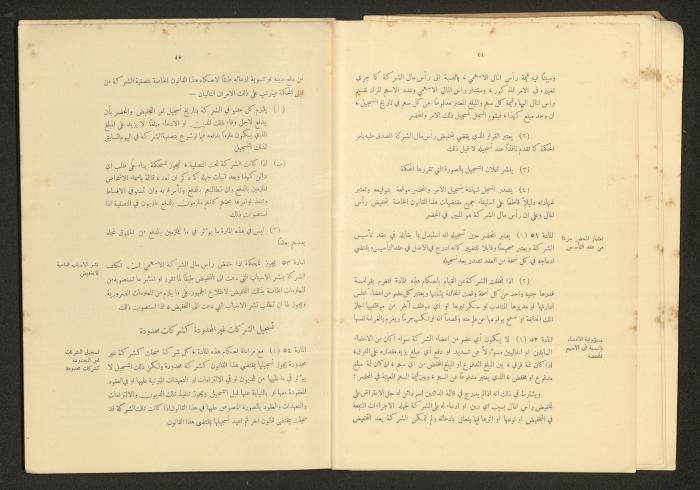 ٤٤
ومبينًا فيه قيمة رأس المال الاسمي ، بالنسبة الى رأس مال الشركة كما جرى
تغييره في الامر المذكور ، ومقدار رأس المال الاسمي وعدد الاسهم المراد تقسيم
رأس المال اليها وقيمة كل سهم والمبلغ المعتبر مدفوعًا عن كل سهم في تاريخ التسجيل ،
ان وجد مبلغ كهذا ، فيقوم المسجل بتسجيل ذلك الامر والمحضر
(٢) يعتبر القرار الذي يقضي بتخفيض رأس مال الشركة المصدق عليه بامر
المحكمة كما تقدم نافذًا عند تسجيله لا قبل ذلك
(٣) ينشر اعلان التسجيل بالصورة التي تقررها المحكمة
(٤) يصدر المسجل شهادة بتسجيل الامر والمحضر موقعة بتوقيعه وتعتبر
شهادته دليلاً قاطعًا على استيفاء جميع مقتضيات هذا القانون الخاصة بتخفيض رأس
المال وعلى ان رأس مال الشركة هو المبين في المحضر
اعتبار المحضر جزءًا
من عقد التأسيس
المادة ٥١ (١) يعتبر المحضر حين تسجيله انه استبدل بما يقابله في عقد تأسيس
الشركة ويعتبر صحيحًا وقابلا للتغيير كأنه ادرج في الاصل في عقد التأسيس ويقتضي
ادماجه في كل نسخة من العقد تصدر بعد تسجيله
(٢) اذا تخلفت الشركة عن القيام باحكام هذه المادة تغرم بغرامة
قدرها جنيه واحد عن كل نسخة وقعت المخالفة بشأنها ويعتبر كل عضو من اعضاء مجلس
ادارتها او مديرها المنتدب او سكرتيرها او اي موظف آخر من موظفيها اجاز
تلك المخالفة او سمح بوقوعها عن علم منه وقصد انه ارتكب جرمًا ويغرم بالغرامة نفسها
مسؤولية الاعضاء
بالنسبة الى الاسهم
المخفضة
المادة ٥٢ (١) لا يكون أي عضو من اعضاء الشركة سواء اكان من الاعضاء
السابقين ام الحاليين مسؤولاً عن تسديد او دفع أي مبلغ يزيد مقداره على الفرق ،
اذا كان ثمة فرق ، بين المبلغ المدفوع او المبلغ المخفض من أي سهم ، ان كان ثمة مبلغ
مدفوع او مخفض ، الذي يعتبر مدفوعًا عن السهم ، وبين قيمة السهم المعينة في المحضر :
ويشترط في ذلك انه اذا لم يدرج في قائمة الدائنين اسم دائن له حق الاعتراض على
تخفيض رأس المال بسبب اي دين او ادعاء له على الشركة لجهله الاجراءات المتبعة
في التخفيض او نوعها او اثرها فيما يتعلق بادعائه ولم تتمكن الشركة بعد التخفيض
٤٥
من دفع دينه او تسوية ادعائه طبقًا لاحكام هذا القانون الخاصة بتصفية الشركة من
قبل المحكمة فيترتب على ذلك الامران التاليان —
(أ) يلتزم كل عضو في الشركة بتاريخ تسجيل امر التخفيض والمحضر بأن
يدفع لاجل وفاء ذلك الدين او الادعاء مبلغًا لا يزيد على المبلغ
الذي يكون ملزمًا بدفعه فيما لو شرع بتصفية الشركة في اليوم السابق
لذلك التسجيل
(ب) اذا كانت الشركة تحت التصفية ، فيجوز للمحكمة بناء على طلب اي
دائن كهذا وبعد اثبات جهله كما ذكر ان تعد ، قائمة باسماء الاشخاص
الملزمين بالدفع وان تطالبهم بالدفع وتأمرهم به وان تستوفي الاقساط
وتنفذ اوامرها بحقهم كأنهم ملزمون بالدفع عاديون في التصفية اذا
استصوبت ذلك
(٢) ليس في هذه المادة ما يؤثر في ما للملزمين بالدفع من الحقوق تجاه
بعضهم بعضًا
نشر الاسباب الداعية
للتخفيض
المادة ٥٣ يجوز للمحكمة اذا خفض رأس مال الشركة الاسمي ان تكلف
الشركة بنشر الاسباب التي دعت الى التخفيض طبقًا لما تقرر او تنشر ما تستصوبه من
المعلومات الخاصة بذلك التخفيض لاطلاع الجمهور على ما يلزم من المعلومات الضرورية
ويجوز لها ان تطلب نشر الاسباب التي دعت الى التخفيض ، اذا استصوبت ذلك
تسجيل الشركات غير المحدودة كشركات محدودة
تسجيل الشركات
غير المحدودة
كشركات محدودة
المادة ٥٤ (١) مع مراعاة احكام هذه المادة ، كل شركة سجلت كشركة غير
محدودة يجوز تسجيلها بمقتضى هذا القانون كشركة محدودة ولكن ذلك التسجيل لا
يؤثر في ما عليها من الديون او في الالتزامات او التعهدات المترتبة عليها او في العقود
المعقودة معها او بالنيابة عنها قبل التسجيل ويجوز تنفيذ تلك الديون والالتزامات
والتعهدات والعقود بالصورة المنصوص عليها في هذا القانون اذا كانت تلك الشركة قد
سجلت بمقتضى قانون آخر ثم اعيد تسجيلها بمقتضى هذا القانون